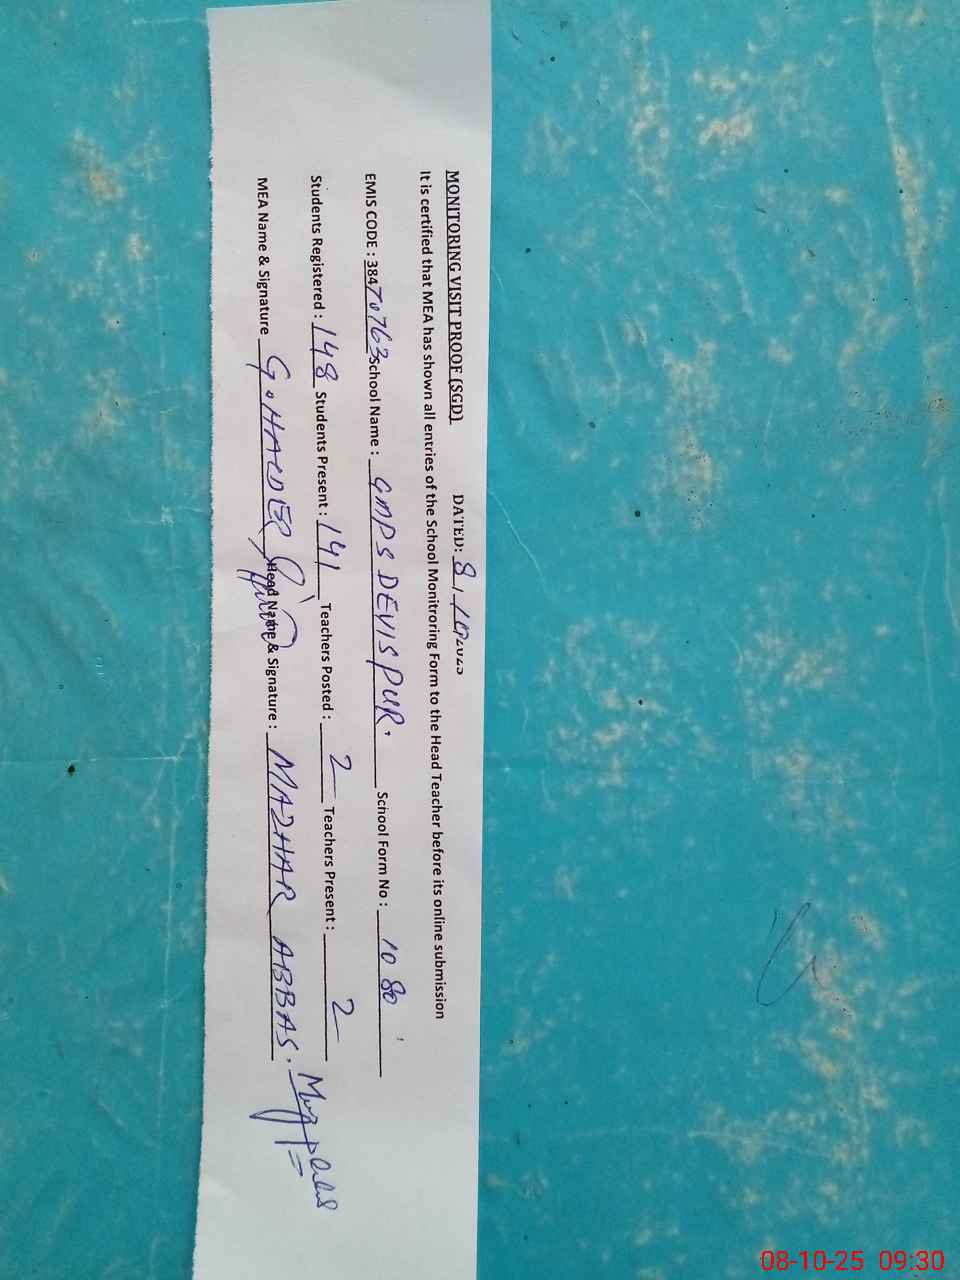 MONITORING VISIT PROOF (SGD) DATED: 8/10/2025
It is certified that MEA has shown all entries of the School Monitroring Form to the Head Teacher before its online submission
EMIS CODE : 38470763 School Name : GMPS DEVISPUR. School Form No : 1080
Students Registered : 148 Students Present : 141 Teachers Posted : 2 Teachers Present : 2
MEA Name & Signature G. HAIDER Head Name & Signature : MAZHAR ABBAS.
08-10-25 09:30